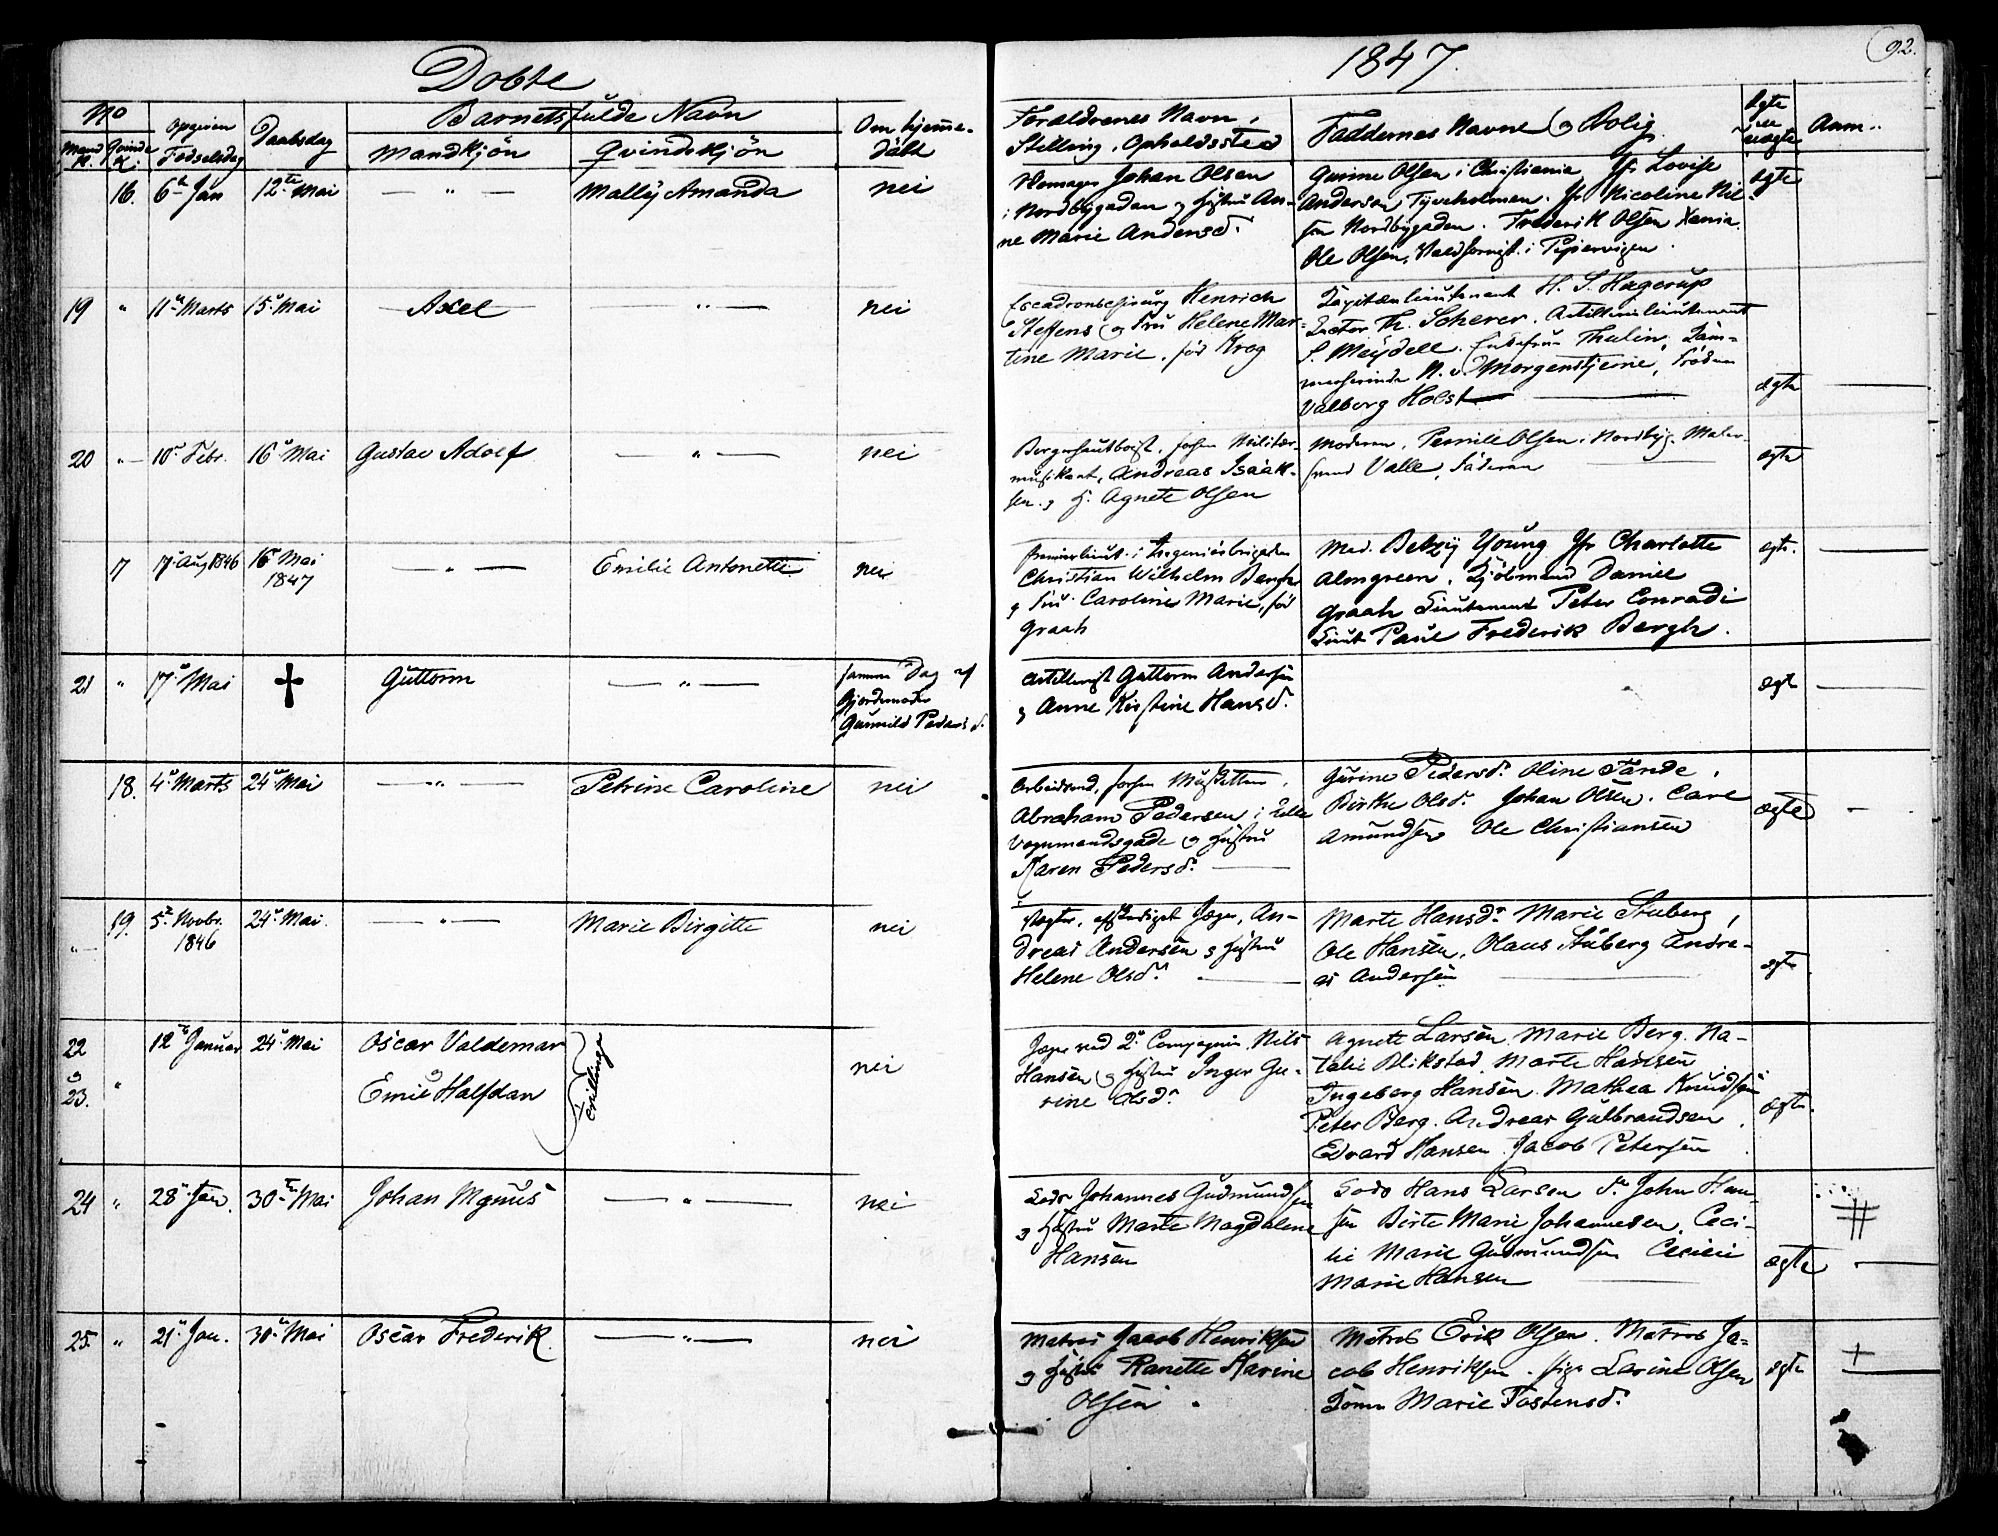 Döbte
1847.
92.
No
Mand K.
Qvinde K.
Opgiven Födselsdag
Daabsdag
Barnets fulde Navn
Mandkjön
Qvindekjön
Om hjemmedöbt
Forældrenes Navn,
Stilling, Opholdssted
Faddernes Navne og Bolig
Ægte
eller
uægte
Anm.
16. 6te Jan 12te Mai — " — Mally Amanda nei
Johan Olsen
i Nordbygaden og Hustru An-
ne Marie Andersd.
Gurine Olsen i Christiania Jfr Lovise
Andersen, Tyveholmen. Jfr Nicoline Nil-
sen Nordbygaden. Frederik Olsen Xania.
Ole Olsen, i Pipervigen.
ægte
19 " 11te Marts 15de Mai Axel — " — nei
Henrich
Steffens og Fru Helene Mar-
tine Marie, föd Krog
Capitainlieutenant H. S. Hagerup
Doctor Th. Scherer. Artillerielieutenant
S. Meydell. Thulin,
M. v. Morgenstjerne, Fröken
Valborg Holst
ægte
20 " 10de Febr. 16de Mai Gustav Adolf — " — nei
Borgerhautboist, forhen Militær-
musikant, Andreas Isaak-
sen og H. Agnete Olsen
Moderen, Pernille Olsen i Nordbyg. Maler-
svend Valle, Faderen
ægte
17 17de Aug 1846 16de Mai
1847
— " — Emilie Antonette nei
Premierlieut. i Ingeniörbrigaden
Christian Wilhelm Bergh
og Fru Caroline Marie, föd
Graah
Mad. Betzy Young Jfr Charlotte
Almgreen, Kjöbmand Daniel
Graah Lieutenant Peter Conradi
Lieut Paul Frederik Bergh.
ægte.
21 " 17de Mai † Guttorm — " —
samme Dag af
Gjordemoder
Gunnild Pedersd.
Artillerist Guttorm Andersen
og Anne Kirstine Hansd.
ægte
18. 4de Marts 24de Mai — " — Petrine Caroline nei
Arbeidsmd, forhen
Abraham Pedersen i Lille
Vognmandsgade og Hustru
Karen Pedersd.
Gurine Pedersd. Oline Tande,
Birthe Olsd. Johan Olsen. Carl
Amundsen Ole Christiansen
ægte
19. 5te Novbr.
1846
24de Mai. — " — Marie Birgitte nei
Vægter, afskediget Jæger, An-
dreas Andersen og Hustru
Helene Olsd.
Marte Hansdr Marie Stuberg,
Ole Hansen, Olaus Stuberg Andre-
as Andersen
ægte
22
og
23.
" 12te Januar 24de Mai
Oscar Valdemar
og
Emil Halfdan
Tvillinge
nei
Jæger ved 2det Compagnie Nils
Hansen og Hustru Inger Gu-
rine Olsdr
Agnete Larsen Marie Berg. Na-
talie Blikstad Marte Hansen
Ingeborg Hansen Mathea Knudsen
Peter Berg. Andreas Gulbrandsen.
Edvard Hansen Jacob Petersen
ægte.
24 " 28de Jan. 30te Mai Johan Magnus — " — nei
Lods Johannes Gudmundsen
og Hustru Marte Magdalene
Hansen
Lods Hans Larsen do John Han-
sen Birte Marie Johannesen, Ceci-
lie Marie Gudmundsen Cecilie
Marie Hansen
ægte
25. " 21de Jan. 30te Mai Oscar Frederik — " — nei
Matros Jacob Henriksen
og Hustru Ranette Karine
Olsen
Matros Erik Olsen. Matros Ja-
cob Henriksen. Pige Larine Olsen
Marie Tostensd.
ægte